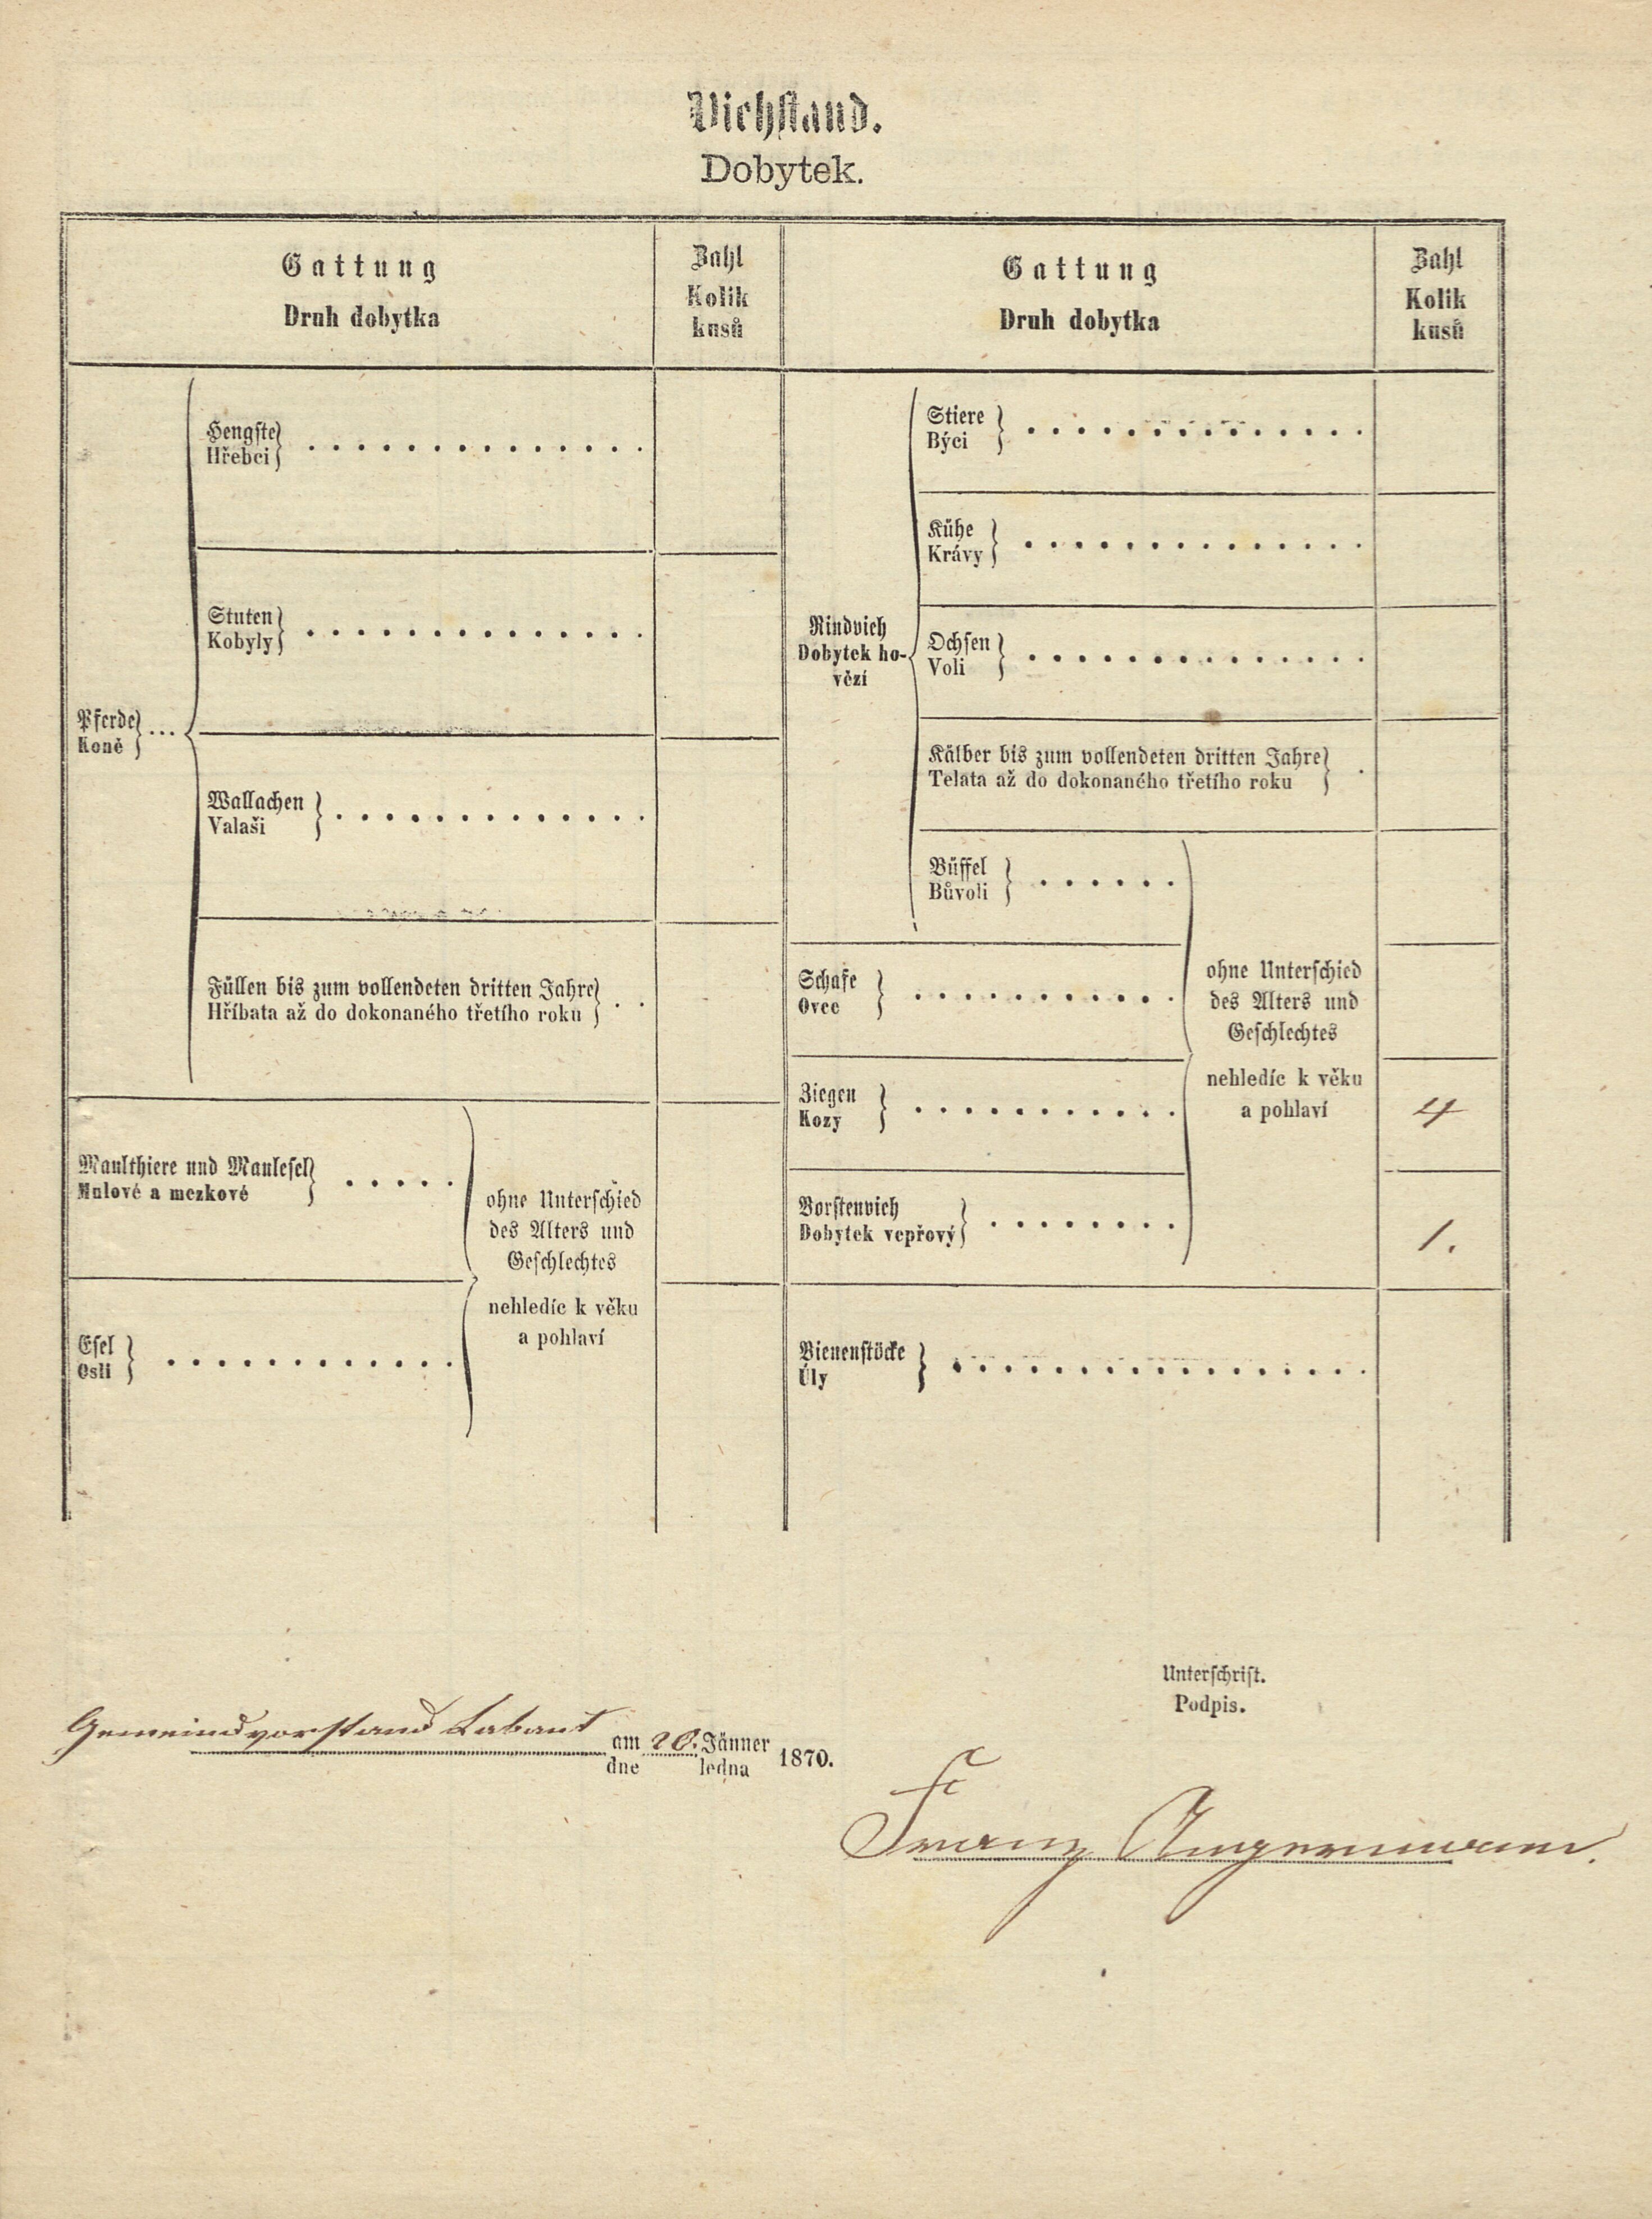 Viehstand.
Dobytek.
Gattung
Druh dobytka
Zahl
Kolik
kusů
Gattung
Druh dobytka
Zahl
Kolik
kusů
Pferde
Koně
Hengste
Hřebci
Stuten
Kobyly
Wallachen
Valaši
Füllen bis zum vollendeten dritten Jahre
Hříbata až do dokonaného třetího roku
Maulthiere und Maulesel
Mulové a mezkové
Esel
Osli
ohne Unterschied
des Alters und
Geschlechtes
nehledíc k věku
a pohlaví
Rindvieh
Dobytek ho-
vězí
Stiere
Býci
Kühe
Krávy
Ochsen
Voli
Kälber bis zum vollendeten dritten Jahre
Telata až do dokonaného třetího roku
Büffel
Bůvoli
Schafe
Ovce
Ziegen
Kozy
4
Borstenvieh
Dobytek vepřový
1.
ohne Unterschied
des Alters und
Geschlechtes
nehledíc k věku
a pohlaví
Bienenstöcke
Úly
Unterschrift.
Podpis.
Gemeindvorstand Labant am 20. Jänner 1870.
dne ledna
Franz Angermann.